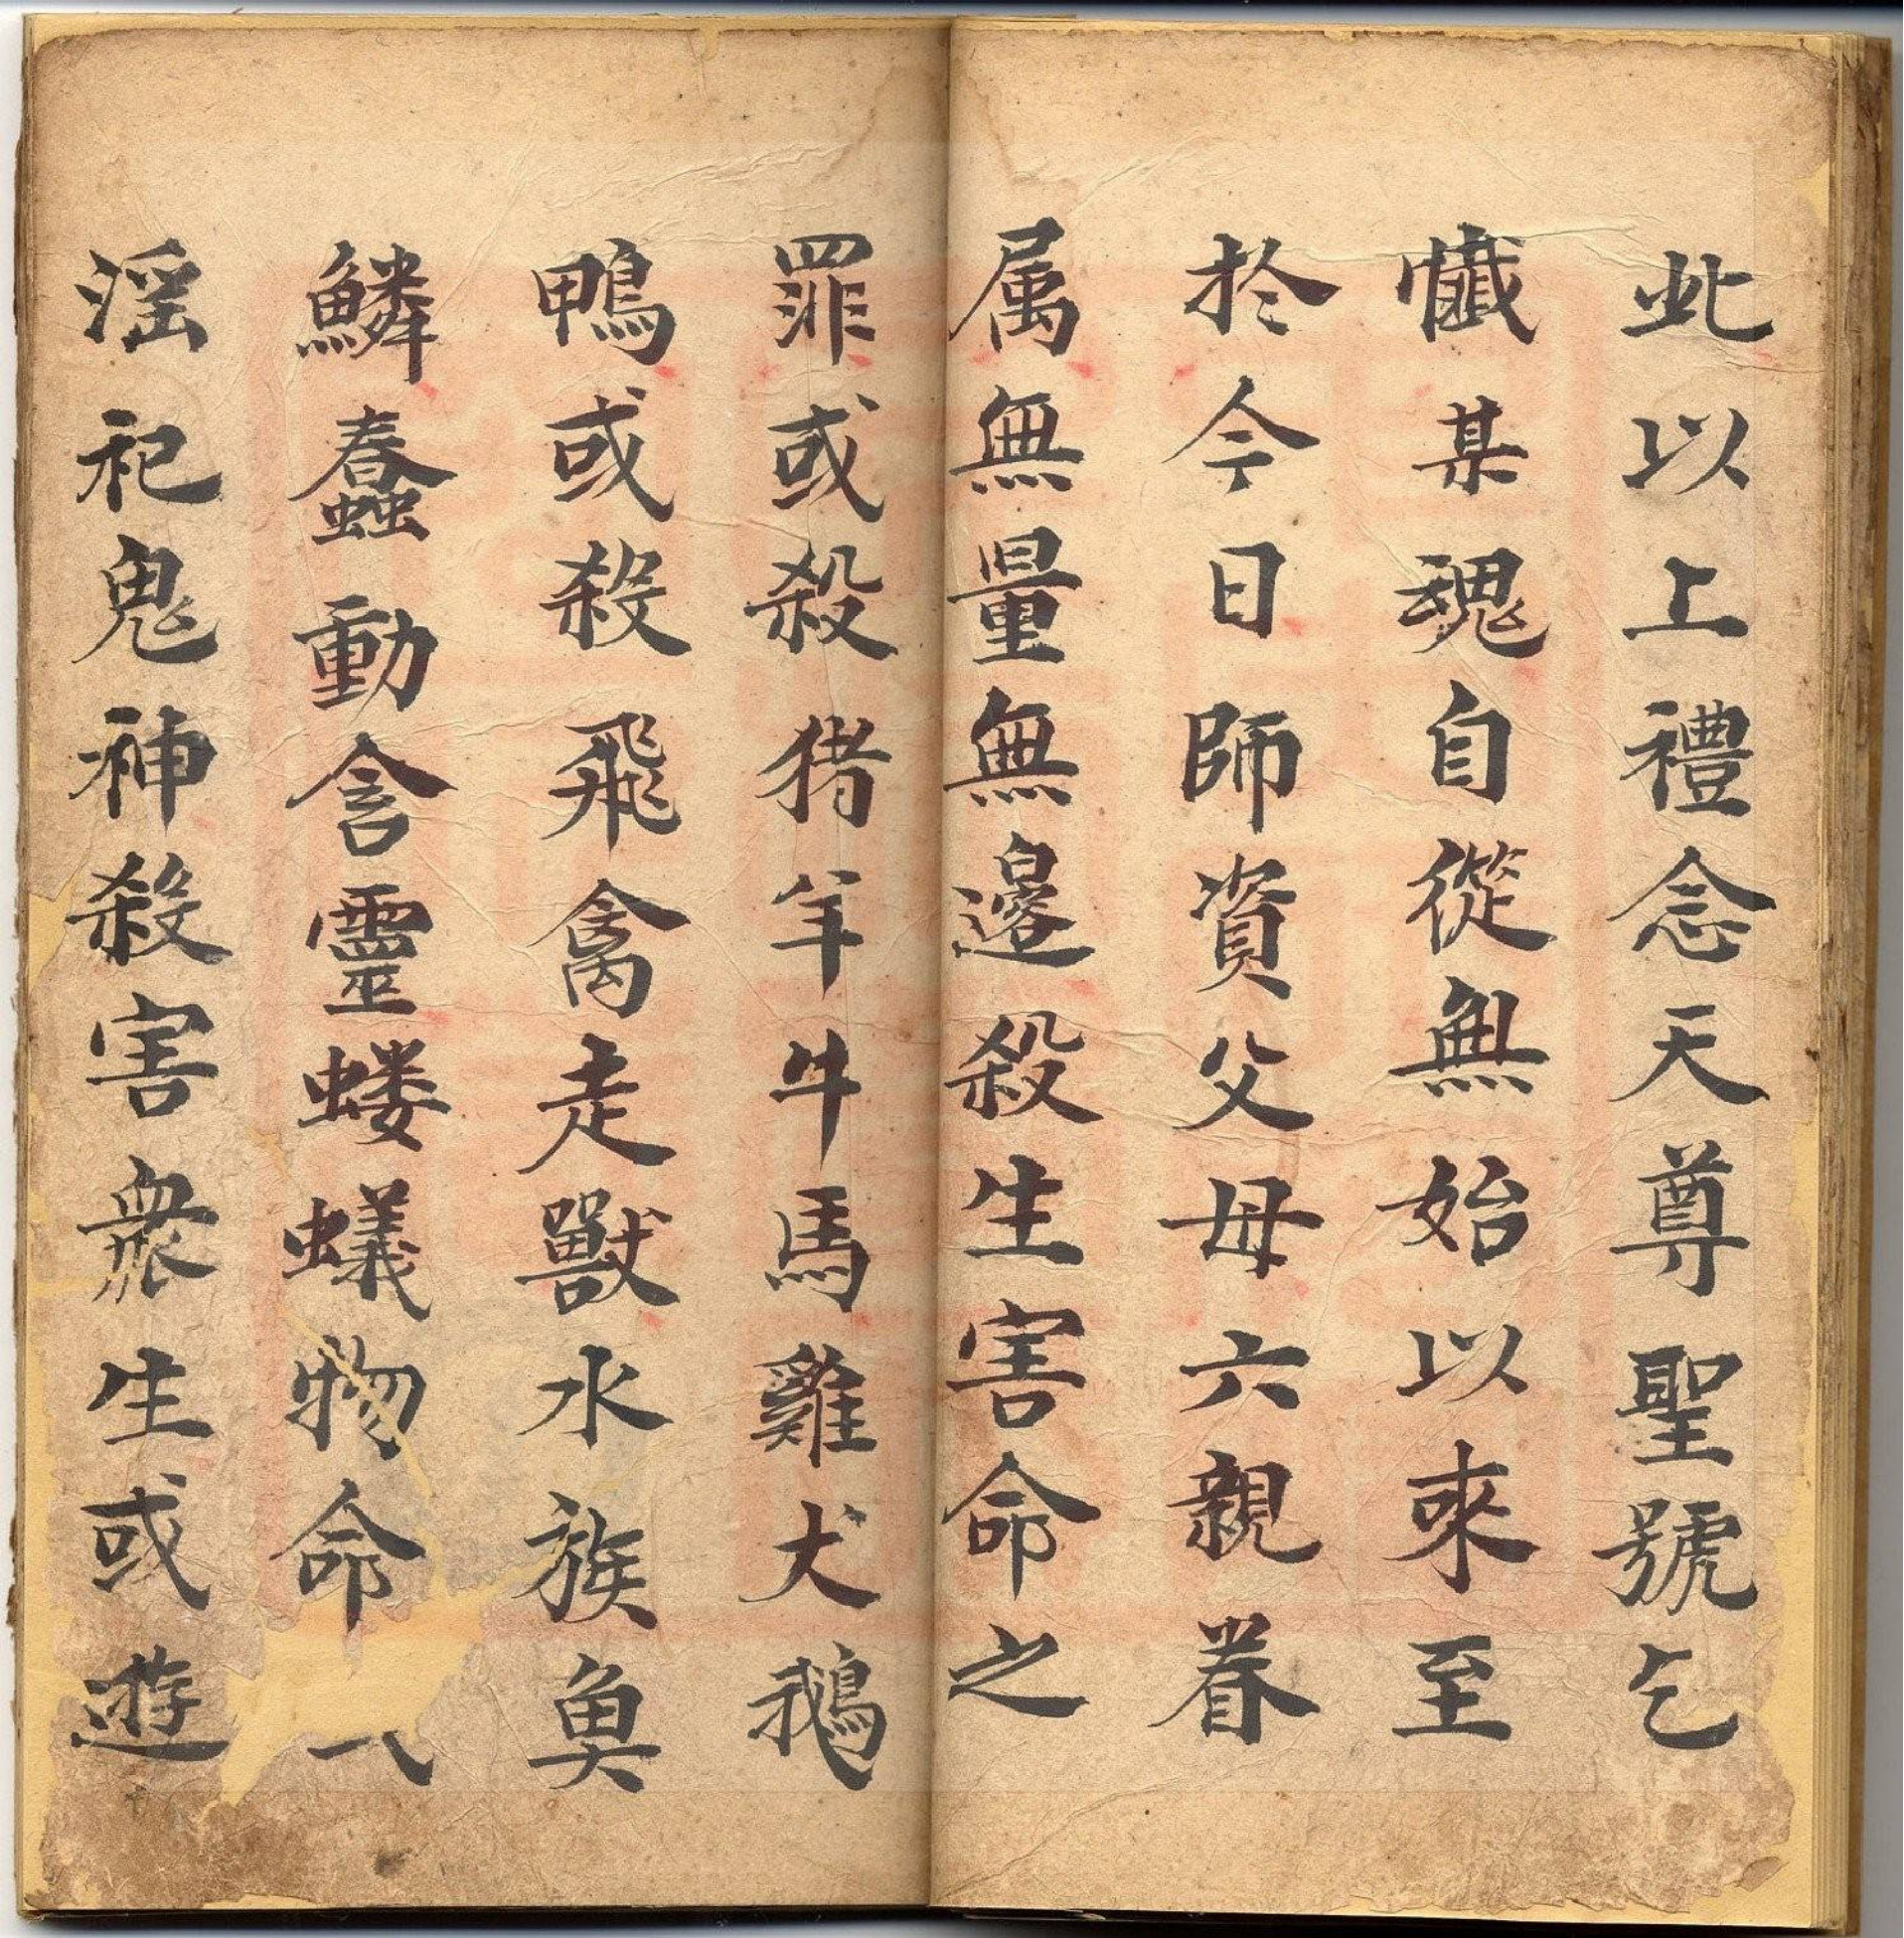 此以上禮念天尊聖號乞
懺某魂自從無始以來至
於今日師資父母六親眷
属無量無邊殺生害命之
罪或殺猪羊牛馬雞犬鵝
鴨或殺飛禽走獸水族魚
鱗蠢動含靈螻蟻物命
淫祀鬼神殺害衆生或遊